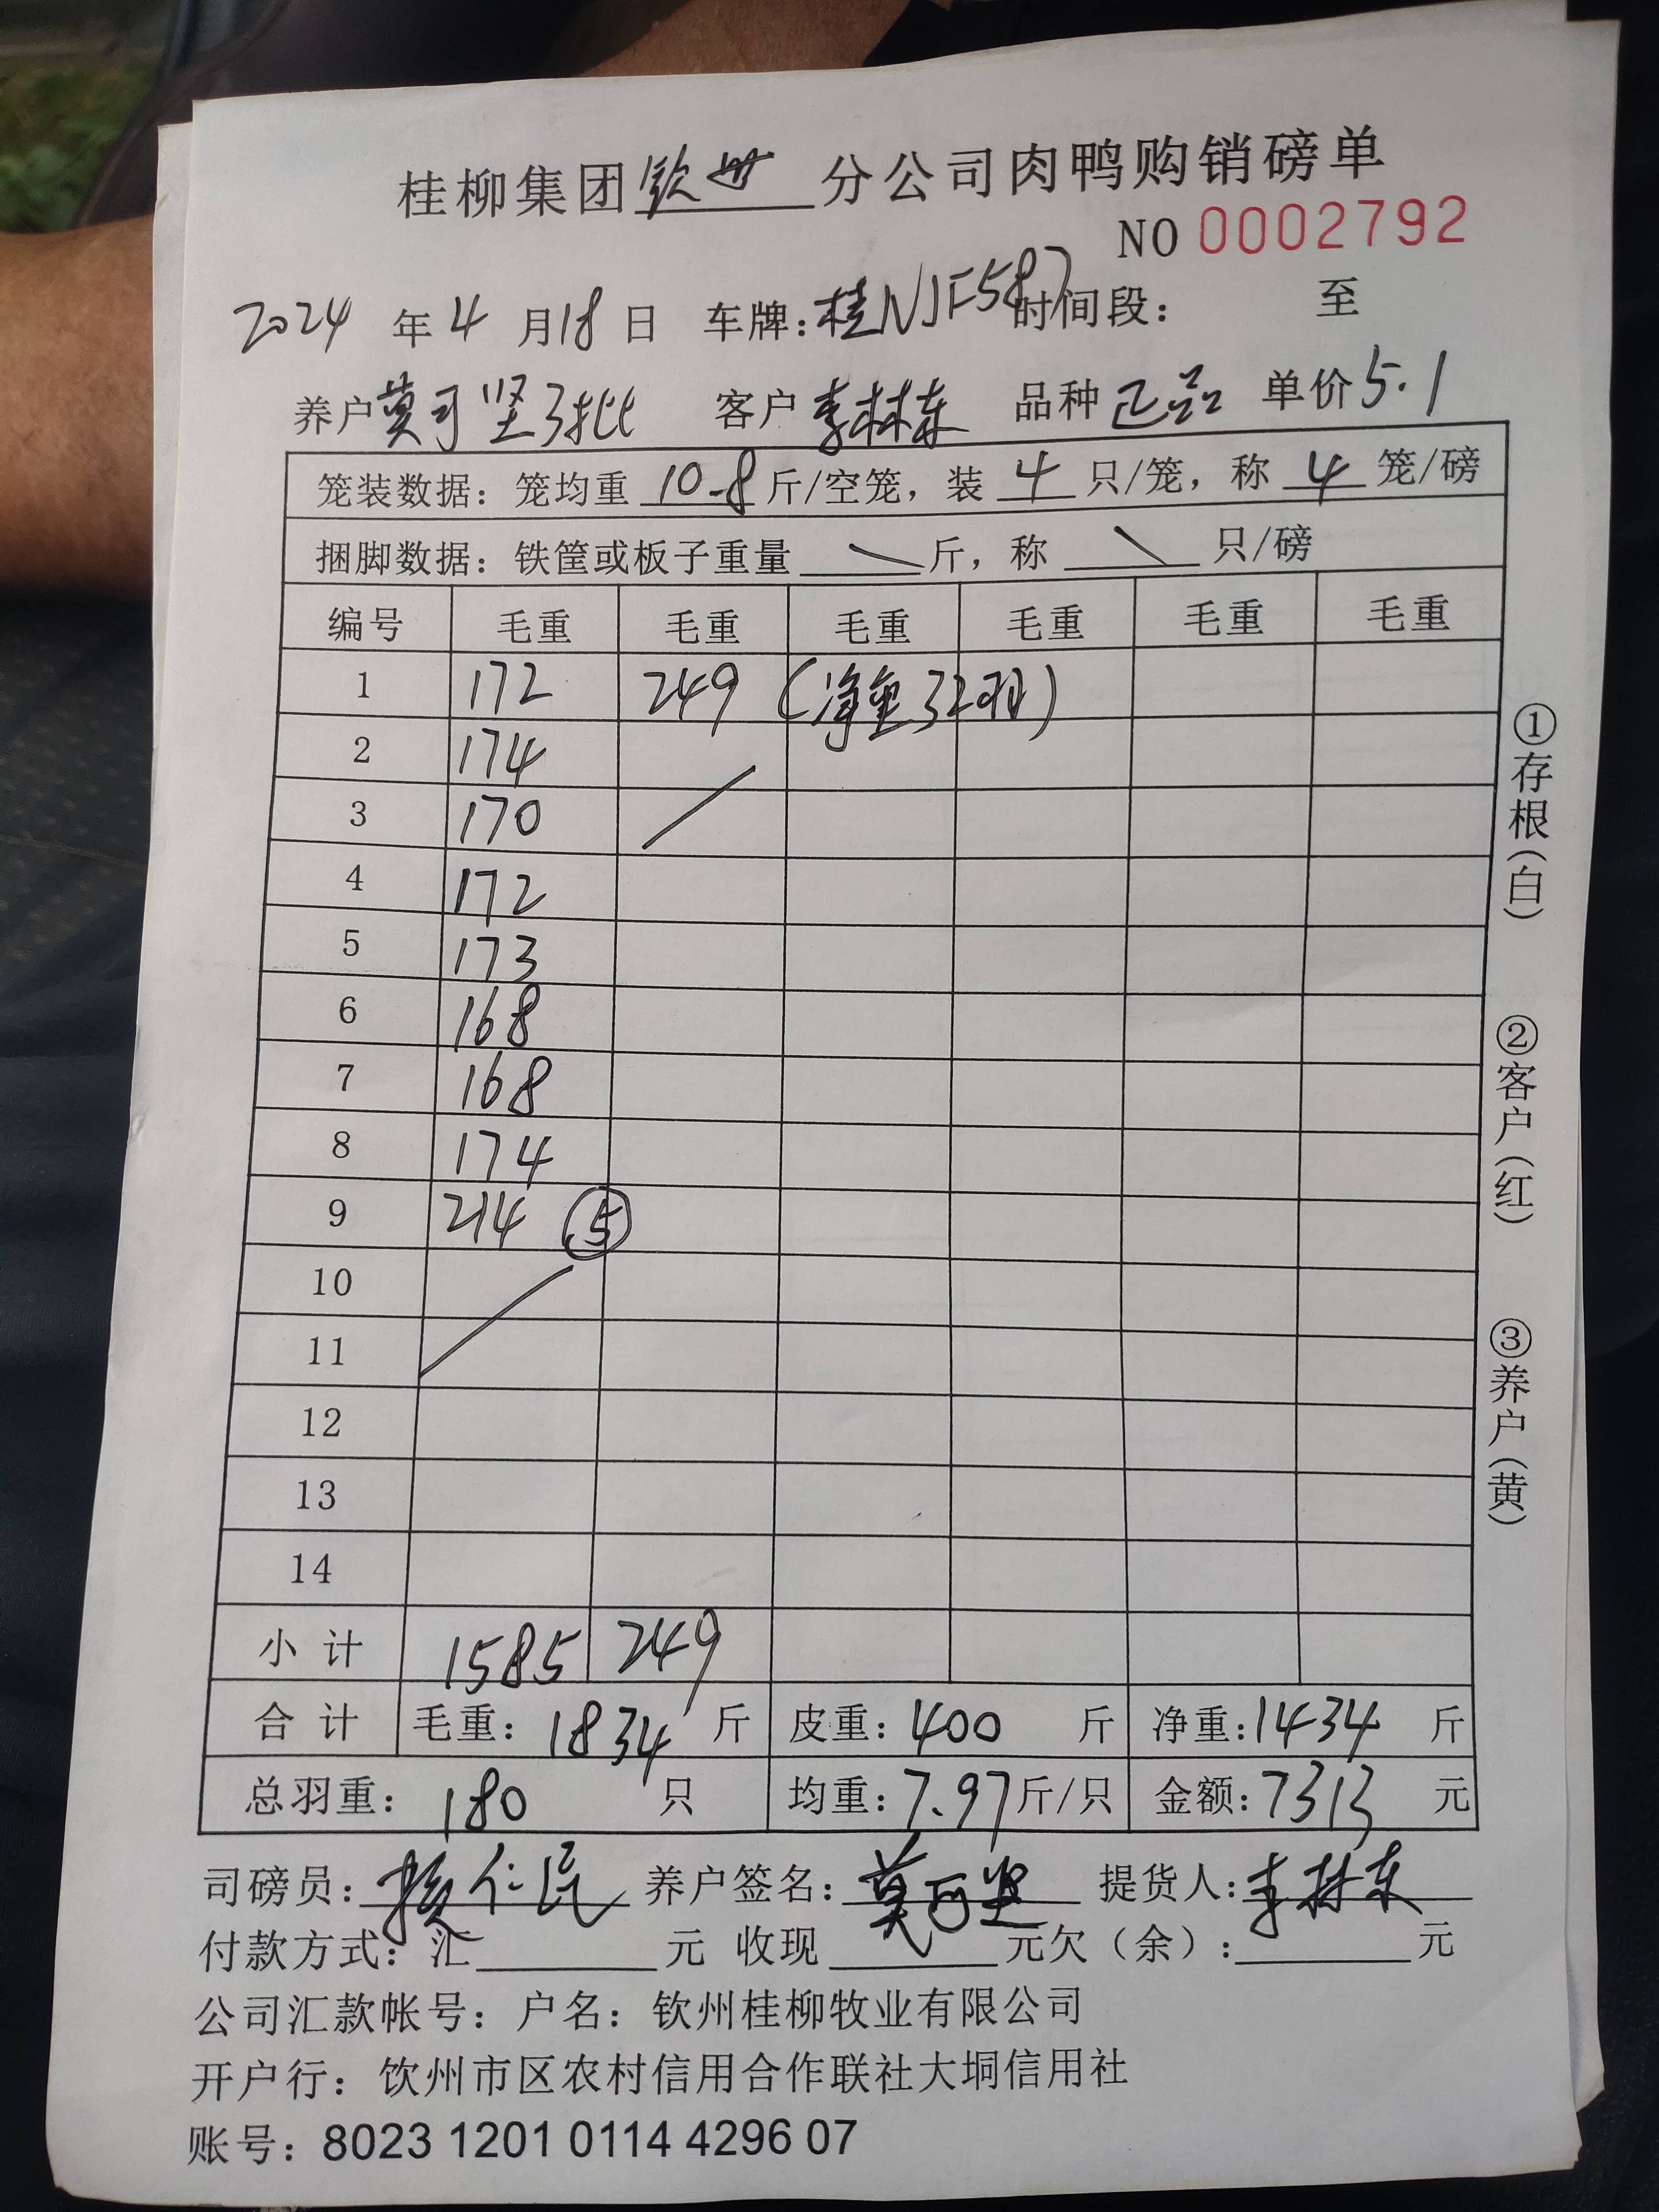 桂柳集团钦州分公司肉鸭购销磅单
NO 0002792
2024 年 4 月 18 日 车牌:桂NJF587 时间段: 至
养户 莫可坚3批 客户 李林东 品种 正品 单价 5.1
笼装数据: 笼均重 10.8 斤/空笼, 装 4 只/笼, 称 4 笼/磅
捆脚数据: 铁筐或板子重量 斤, 称 只/磅
编号 毛重 毛重 毛重 毛重 毛重 毛重
1 172 249 (净重32羽)
2 174
3 170
4 172
5 173
6 168
7 168
8 174
9 214 ⑤
10
11
12
13
14
小计 1585 249
合计 毛重: 1834 斤 皮重: 400 斤 净重: 1434 斤
总羽重: 180 只 均重: 7.97 斤/只 金额: 7313 元
司磅员: 仁民 养户签名: 莫可坚 提货人: 李林东
付款方式: 汇 元 收现 元欠（余）: 元
公司汇款帐号: 户名: 钦州桂柳牧业有限公司
开户行: 饮州市区农村信用合作联社大垌信用社
账号: 8023 1201 0114 4296 07
①存根(白)
②客户(红)
③养户(黄)